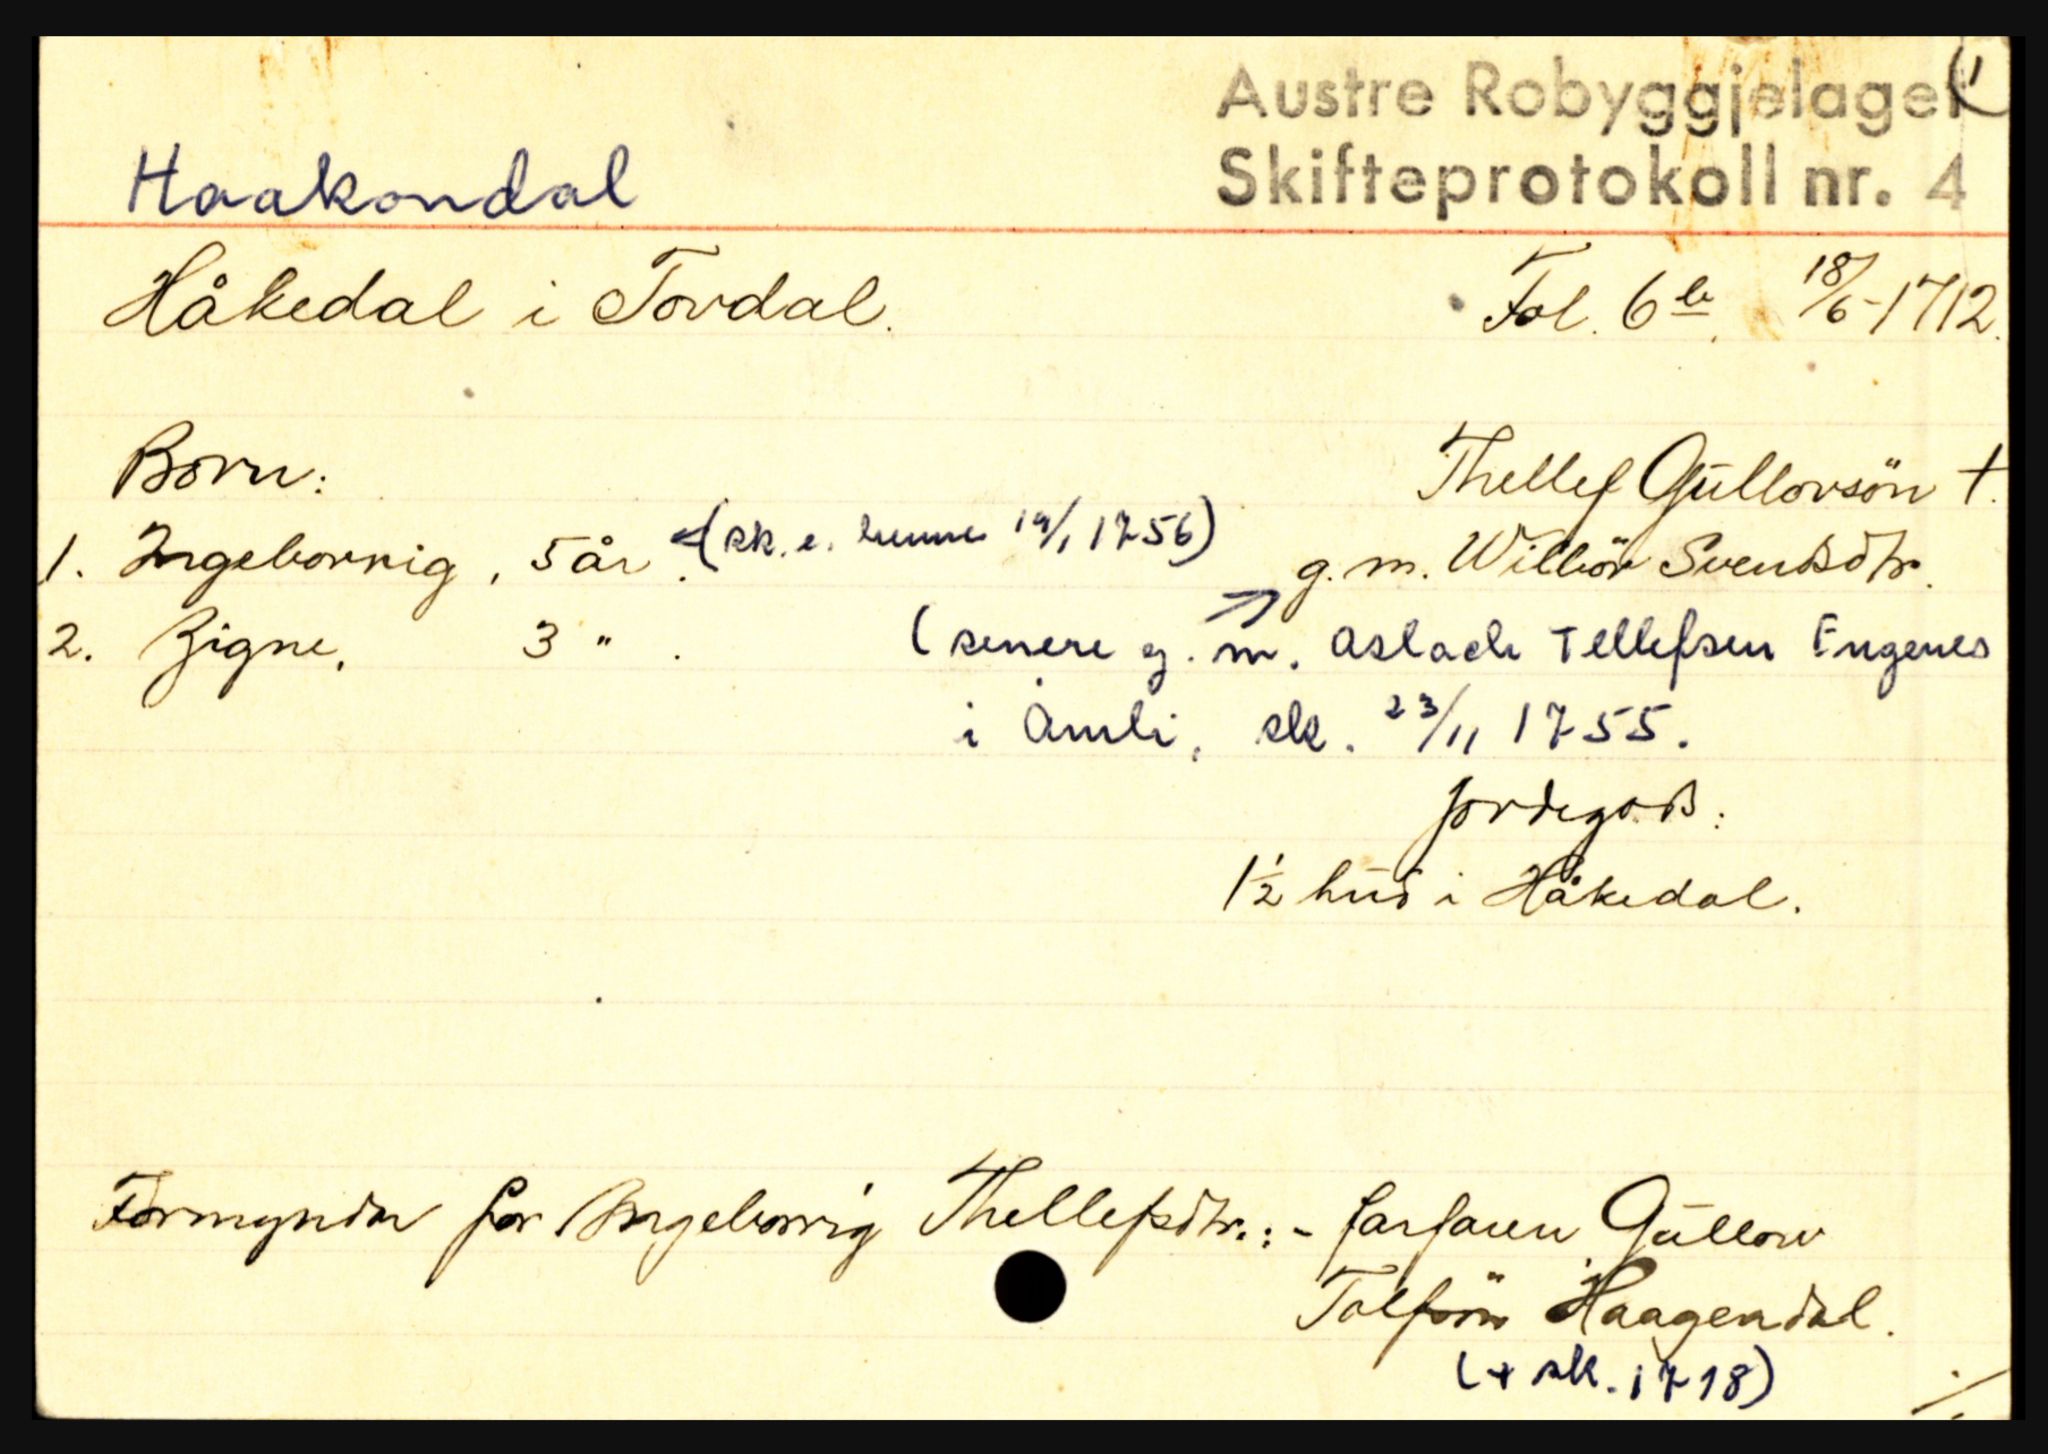 Austre Robyggjelaget (1
Skifteprotokoll nr. 4
Haakondal
Håkedal i Tovdal. Fol. 6 b. 18/6-1712.
Born: Thellef Gullovsön †.
1. Ingeborrig, 5 år. (sk. e. henne 19/1 1756) g. m. Wilbör Svendsdtr.
2. Zigne, 3 " . (senere g. m. Aslach Tellefsen Engenes
i Åmli, sk. 23/11 1755.
Jordegods:
1½ hud i Håkedal.
Formyndar for Ingeborrig Thellefsdtr.: - farfaren Gullow
Tolfsön Haagendal.
(+ sk. 1718)